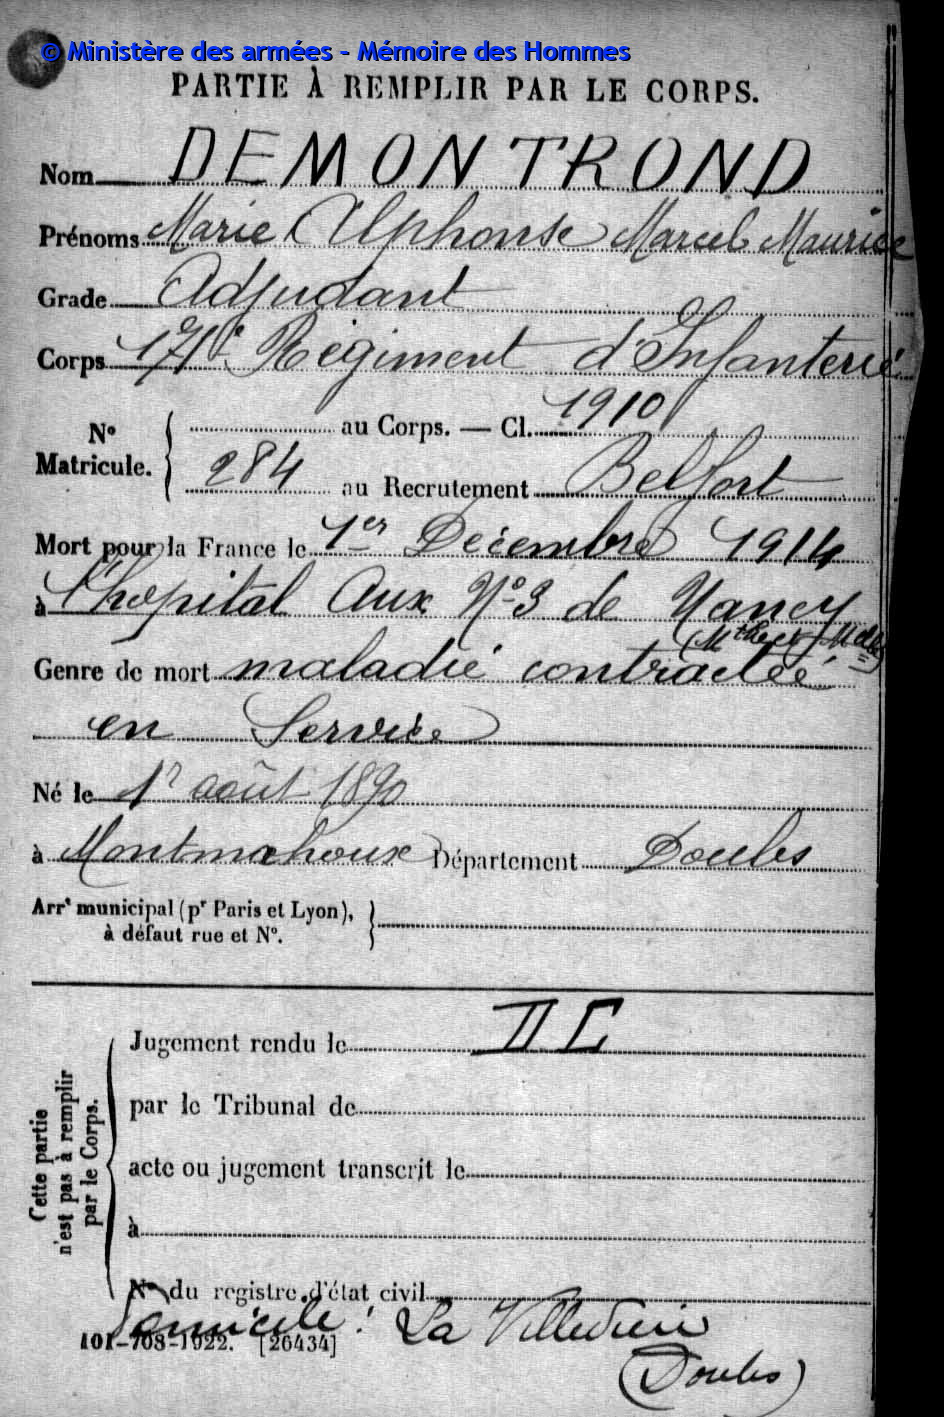 © Ministère des armées - Mémoire des Hommes
PARTIE À REMPLIR PAR LE CORPS.
Nom DEMONTROND
Prénoms Marie Alphonse Marcel Maurice
Grade Adjudant
Corps 171e Régiment d'Infanterie
N° Matricule. { au Corps. — Cl. 1910
284 au Recrutement Belfort
Mort pour la France le 1er Décembre 1914
à l'hopital Aux N°3 de Nancy
(Mthe et Mlle)
Genre de mort maladie contractée
en Service
Né le 1r août 1890
à Montmahoux Département Doubs
Arrt municipal (pr Paris et Lyon), }
à défaut rue et N°.
Cette partie
n'est pas à remplir
par le Corps.
Jugement rendu le DC
par le Tribunal de
acte ou jugement transcrit le
à
N° du registre d'état civil
Domicile : La Villedieu
101-708-1922. [26434]
(Doubs)